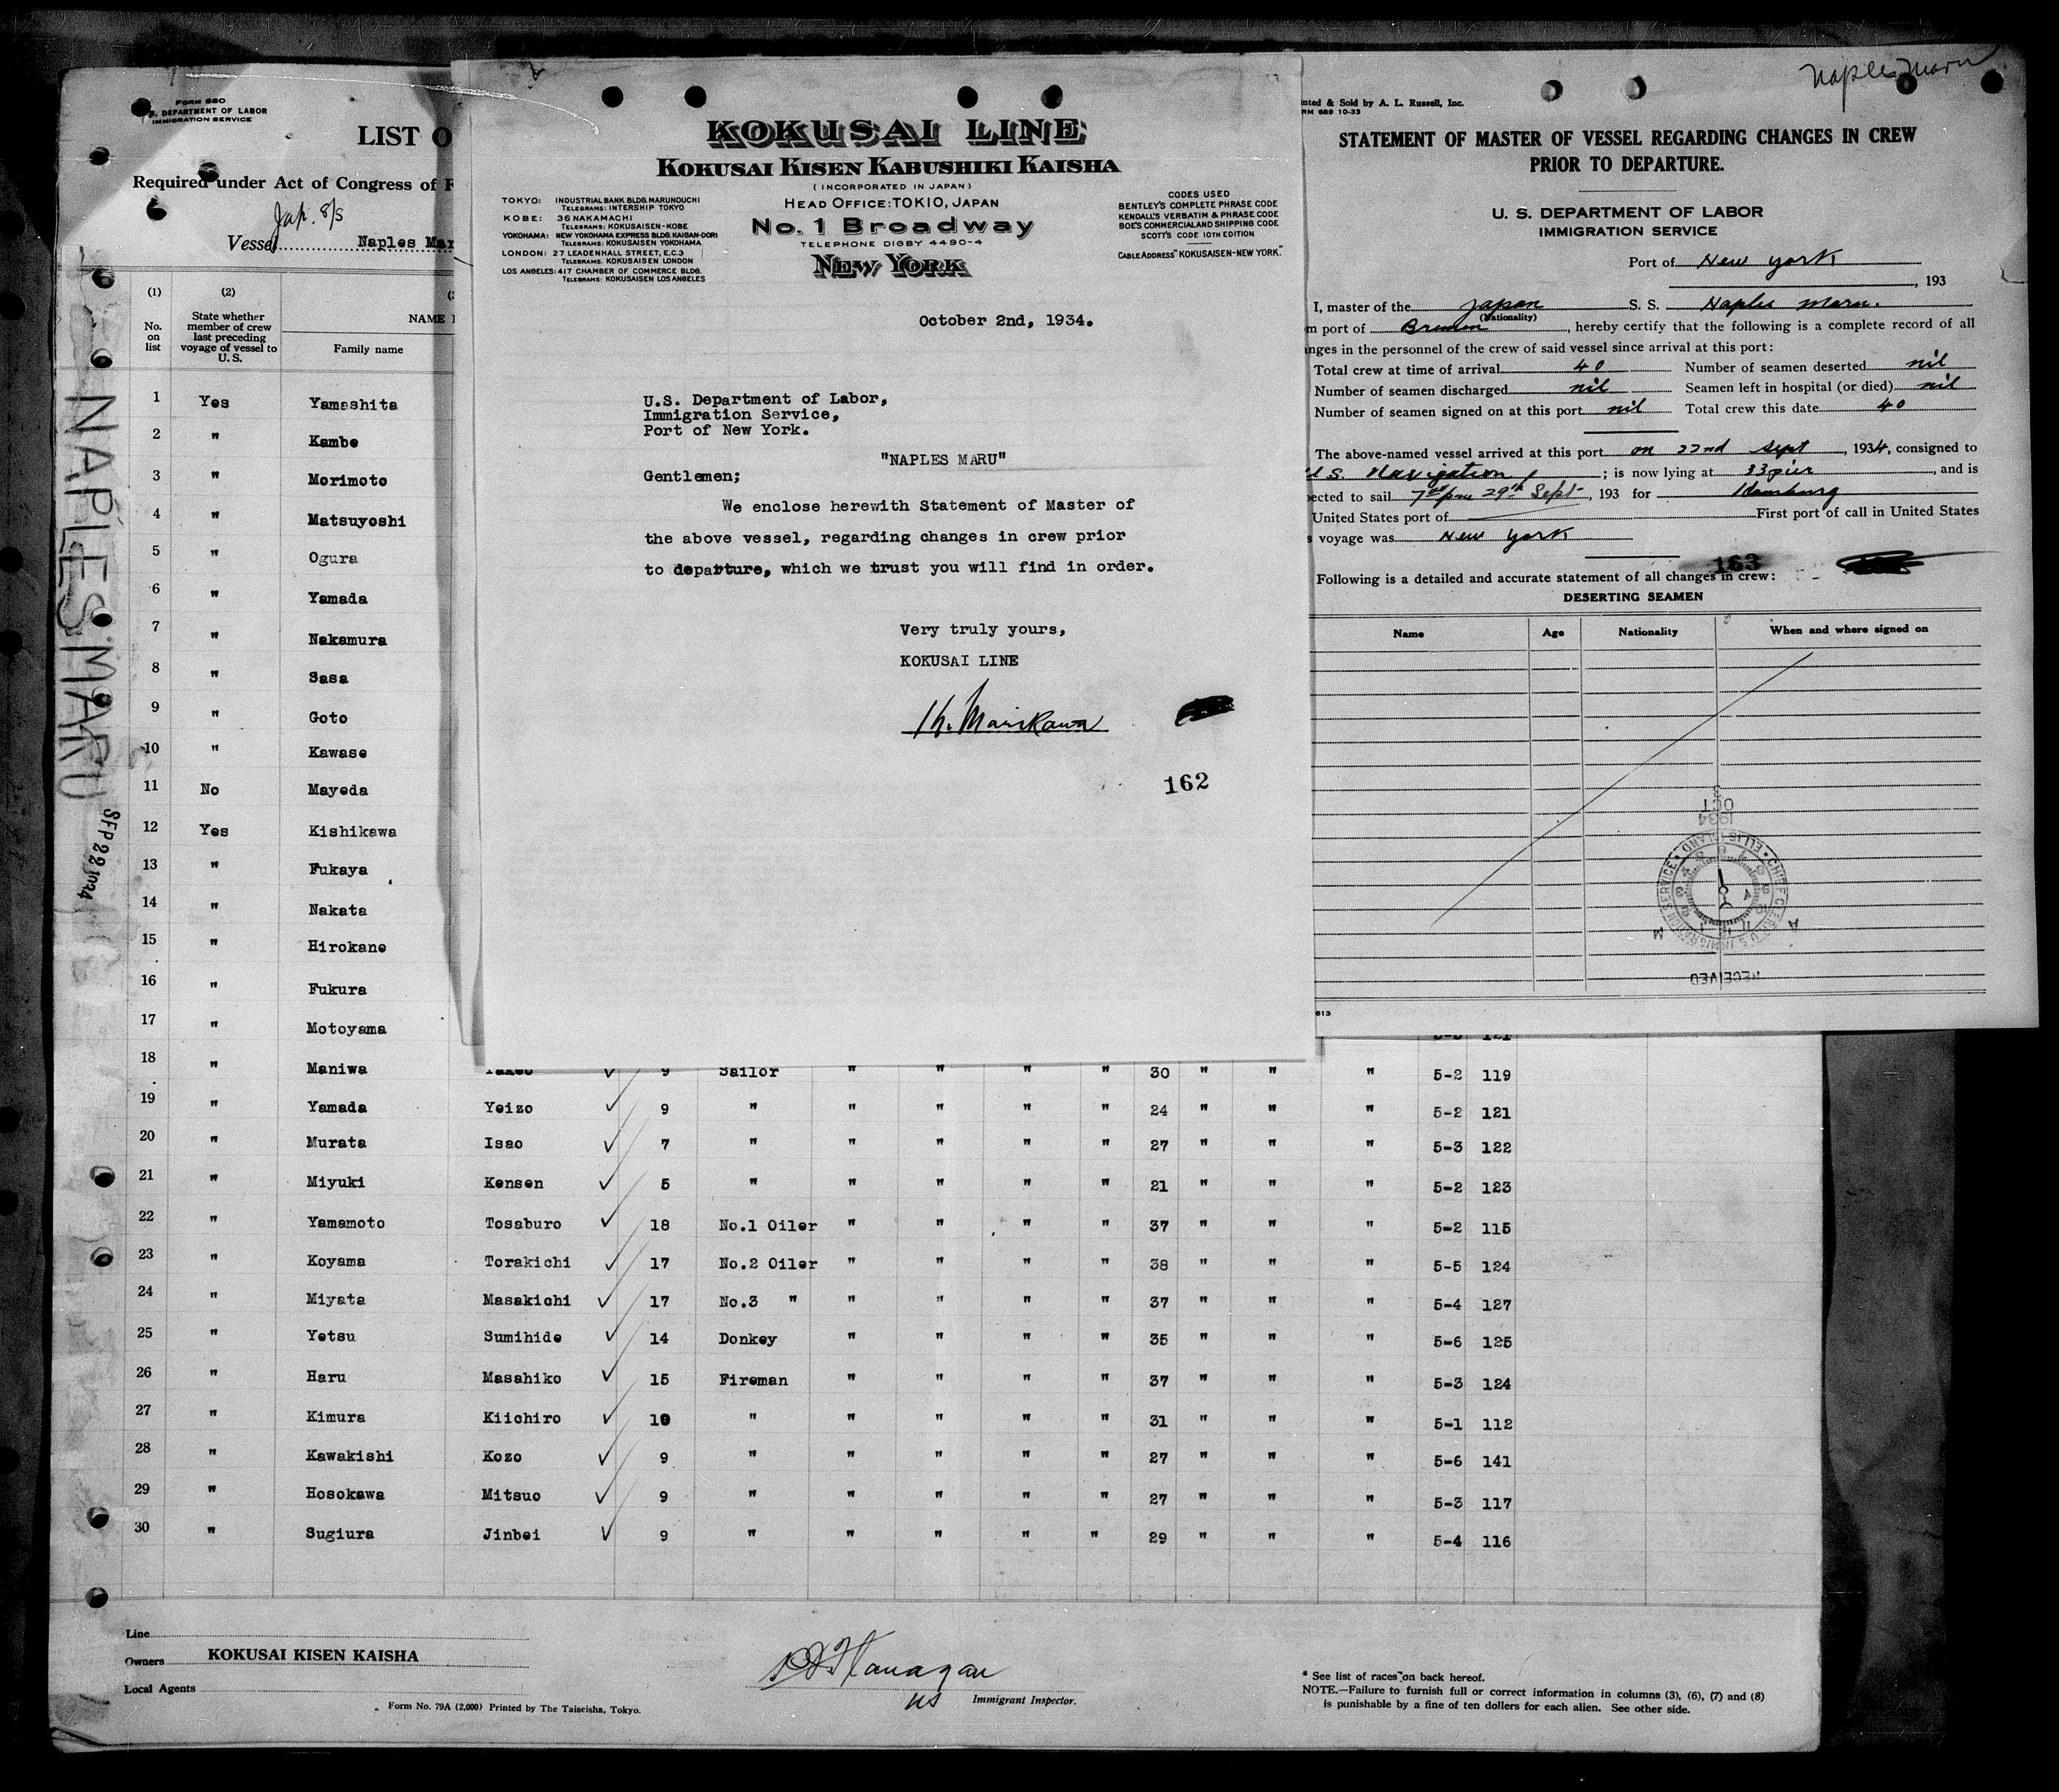 FORM 680
DEPARTMENT OF LABOR
IMMIGRATION SERVICE
LIST O
Required under Act of Congress of F
Jap. S/S
Vessel Naples Mar
(1) (2)
No. on list
State whether member of crew last preceding voyage of vessel to U. S.
NAME
Family name
1 Yes Yamashita
2 " Kambe
3 " Morimoto
4 " Matsuyoshi
5 " Ogura
6 " Yamada
7 " Nakamura
8 " Sasa
9 " Goto
10 " Kawase
11 No Mayeda
12 Yes Kishikawa
13 " Fukaya
14 " Nakata
15 " Hirokane
16 " Fukura
17 " Motoyama
18 " Maniwa Takeo 9 Sailor " " " " 30 " " " 5-2 119
19 " Yamada Yeizo 9 " " " " " 24 " " " 5-2 121
20 " Murata Isao 7 " " " " " 27 " " " 5-3 122
21 " Miyuki Kensen 5 " " " " " 21 " " " 5-2 123
22 " Yamamoto Tosaburo 18 No.1 Oiler " " " " 37 " " " 5-2 115
23 " Koyama Torakichi 17 No.2 Oiler " " " " 38 " " " 5-5 124
24 " Miyata Masakichi 17 No.3 " " " " " 37 " " " 5-4 127
25 " Yetsu Sumihide 14 Donkey " " " " 35 " " " 5-6 125
26 " Haru Masahiko 15 Fireman " " " " 37 " " " 5-3 124
27 " Kimura Kiichiro 10 " " " " " 31 " " " 5-1 112
28 " Kawakishi Kozo 9 " " " " " 27 " " " 5-6 141
29 " Hosokawa Mitsuo 9 " " " " " 27 " " " 5-3 117
30 " Sugiura Jinbei 9 " " " " " 29 " " " 5-4 116
Line
Owners KOKUSAI KISEN KAISHA
Local Agents
Form No. 79A (2,000) Printed by The Taiseisha, Tokyo.
Flanagan
US Immigrant Inspector.
* See list of races on back hereof.
NOTE.—Failure to furnish full or correct information in columns (3), (6), (7) and (8)
is punishable by a fine of ten dollars for each alien. See other side.
NAPLES MARU
SEP 22 1934
KOKUSAI LINE
KOKUSAI KISEN KABUSHIKI KAISHA
(INCORPORATED IN JAPAN)
HEAD OFFICE: TOKIO, JAPAN
No. 1 Broadway
TELEPHONE DIGBY 4490-4
NEW YORK
TOKYO: INDUSTRIAL BANK BLDG. MARUNOUCHI
TELEGRAMS: INTERSHIP TOKYO
KOBE: 36 NAKAMACHI
TELEGRAMS: KOKUSAISEN-KOBE
YOKOHAMA: NEW YOKOHAMA EXPRESS BLDG. KAIGAN-DORI
TELEGRAMS: KOKUSAISEN YOKOHAMA
LONDON: 27 LEADENHALL STREET, E.C.3
TELEGRAMS. KOKUSAISEN LONDON
LOS ANGELES: 417 CHAMBER OF COMMERCE BLDG.
TELEGRAMS: KOKUSAISEN LOS ANGELES
CODES USED
BENTLEY'S COMPLETE PHRASE CODE
KENDALL'S VERBATIM & PHRASE CODE
BOE'S COMMERCIAL AND SHIPPING CODE
SCOTT'S CODE 10TH EDITION
CABLE ADDRESS "KOKUSAISEN-NEW YORK."
October 2nd, 1934.
U.S. Department of Labor,
Immigration Service,
Port of New York.
"NAPLES MARU"
Gentlemen;
We enclose herewith Statement of Master of
the above vessel, regarding changes in crew prior
to departure, which we trust you will find in order.
Very truly yours,
KOKUSAI LINE
162
Naples Maru
nted & Sold by A. L. Russell, Inc.
RM 689 10-33
STATEMENT OF MASTER OF VESSEL REGARDING CHANGES IN CREW
PRIOR TO DEPARTURE.
U. S. DEPARTMENT OF LABOR
IMMIGRATION SERVICE
Port of New York
, 193
I, master of the Japan S. S. Naples Maru.
(Nationality)
m port of Bremen, hereby certify that the following is a complete record of all
nges in the personnel of the crew of said vessel since arrival at this port:
Total crew at time of arrival 40 Number of seamen deserted nil
Number of seamen discharged nil Seamen left in hospital (or died) nil
Number of seamen signed on at this port nil Total crew this date 40
The above-named vessel arrived at this port on 22nd Sept, 1934, consigned to
U.S. Navigation; is now lying at 33 pier, and is
pected to sail 29th Sept, 193 for Hamburg
United States port of First port of call in United States
s voyage was New York
163
Following is a detailed and accurate statement of all changes in crew:
DESERTING SEAMEN
Name Age Nationality When and where signed on
OCT 3
1934
CHIEF CLERK U.S. IMMIGRATION SERVICE ELLIS ISLAND
A M
RECEIVED
613
5-3 121